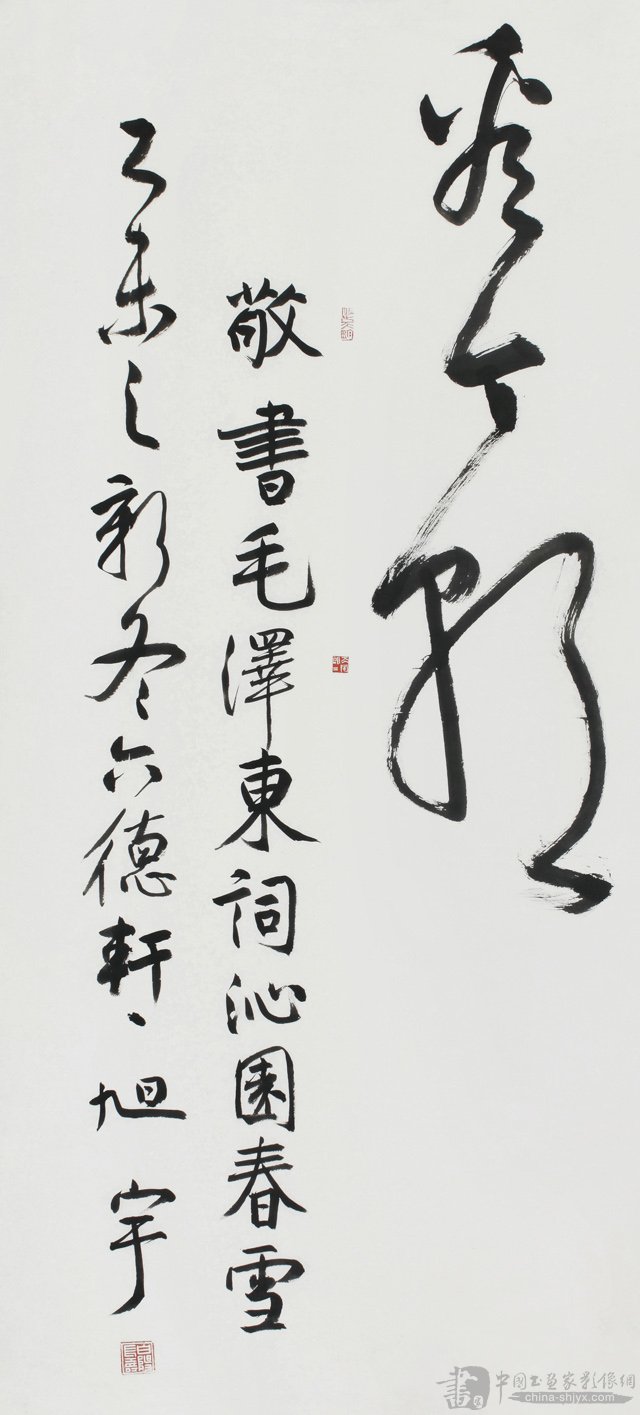 看今朝
敬書毛澤東詞沁園春雪
乙未之新冬六德軒、旭宇
中國书画家影像網
china-shjyx.com